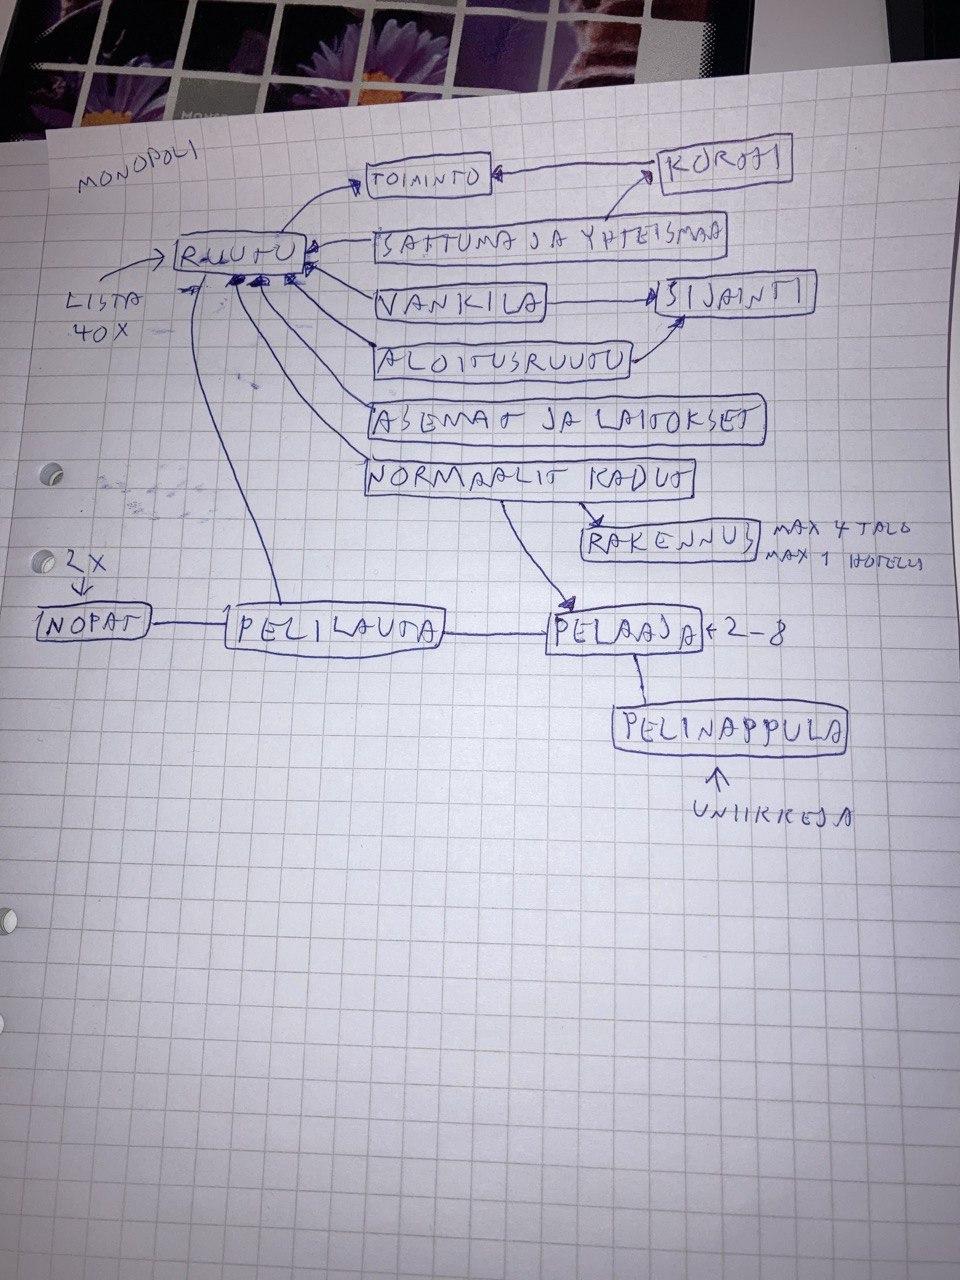 MONOPOLI
TOIMINTO
KORTTI
RUUTU
SATTUMA JA YHTEISMAA
LISTA
40X
VANKILA
SIJAINTI
ALOITUSRUUTU
ASEMAT JA LAITOKSET
NORMAALIT KADUT
RAKENNUS
MAX 4 TALO
MAX 1 HOTELLI
2X
NOPAT
PELILAUTA
PELAAJA
2-8
PELINAPPULA
UNIIKKEJA